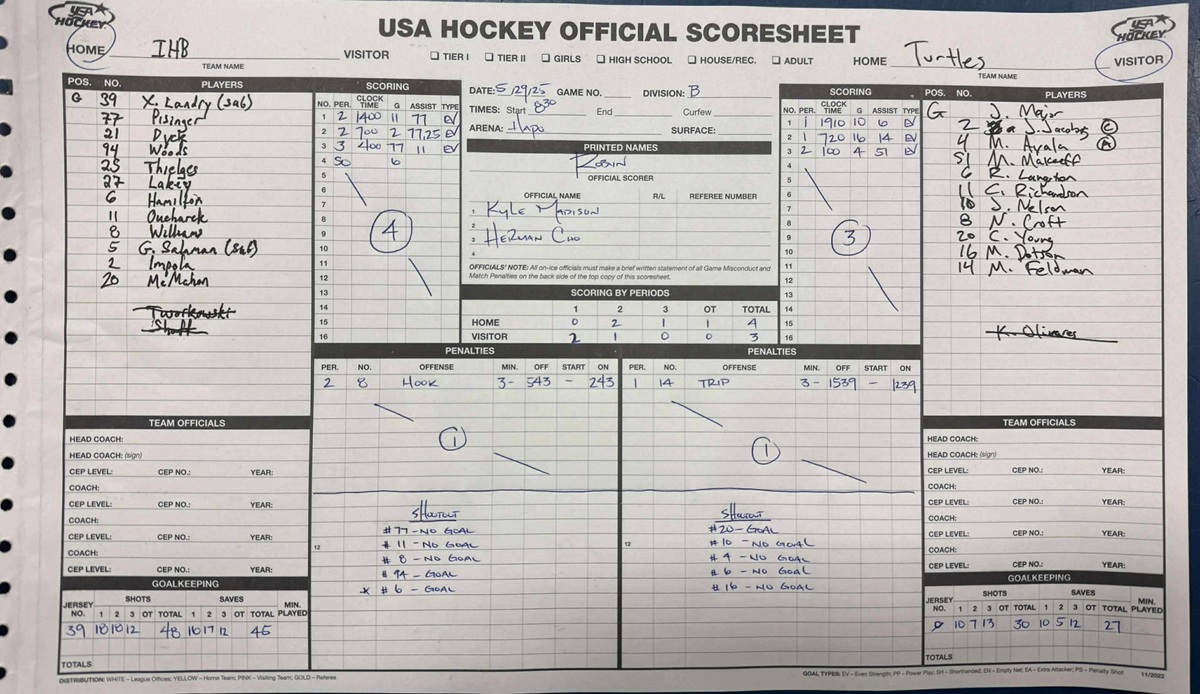 USA HOCKEY
USA HOCKEY OFFICIAL SCORESHEET
USA HOCKEY
HOME IHB VISITOR
TEAM NAME
☐ TIER I ☐ TIER II ☐ GIRLS ☐ HIGH SCHOOL ☐ HOUSE/REC. ☐ ADULT
HOME Turtles VISITOR
TEAM NAME
POS. NO. PLAYERS
G 39 X. Landry (sub)
77 Pisinger
21 Dyck
94 Woods
25 Thielges
27 Lakey
6 Hamilton
11 Oucharek
8 Williams
5 G. Salaman (sub)
2 Impola
20 McMahon
Tworkowski
Shott
SCORING
NO. PER. CLOCK TIME G ASSIST TYPE
1 2 1400 11 77 EV
2 2 700 2 77,25 EV
3 3 400 77 11 EV
4 SO 6
5
6
7
8
9
10
11
12
13
14
15
16
4
DATE: 5/29/25 GAME NO. DIVISION: B
TIMES: Start 8:30 End Curfew
ARENA: Hapo SURFACE:
PRINTED NAMES
Robin
OFFICIAL SCORER
OFFICIAL NAME R/L REFEREE NUMBER
1 Kyle Madison
2
3 Herman Cho
4
OFFICIALS' NOTE: All on-ice officials must make a brief written statement of all Game Misconduct and
Match Penalties on the back side of the top copy of this scoresheet.
SCORING BY PERIODS
1 2 3 OT TOTAL
HOME 0 2 1 1 4
VISITOR 2 1 0 0 3
SCORING
NO. PER. CLOCK TIME G ASSIST TYPE
1 1 1910 10 6 EV
2 1 720 16 14 EV
3 2 100 4 51 EV
4
5
6
7
8
9
10
11
12
13
14
15
16
3
POS. NO. PLAYERS
G J. Major
2 J. Jacobs C
4 M. Ayala A
51 M. Makeeff
6 R. Langston
11 C. Richardson
10 J. Nelson
8 N. Croft
20 C. Young
16 M. Dotson
14 M. Feldman
K. Olivares
PENALTIES
PER. NO. OFFENSE MIN. OFF START ON
2 8 HOOK 3- 543 - 243
1
SHOOTOUT
#77 - NO GOAL
# 11 - NO GOAL
# 8 - NO GOAL
# 94 - GOAL
* # 6 - GOAL
12
PENALTIES
PER. NO. OFFENSE MIN. OFF START ON
1 14 TRIP 3- 1539 - 1239
1
SHOOTOUT
#20 - GOAL
#10 - NO GOAL
# 4 - NO GOAL
# 6 - NO GOAL
#16 - NO GOAL
12
TEAM OFFICIALS
HEAD COACH:
HEAD COACH: (sign)
CEP LEVEL: CEP NO.: YEAR:
COACH:
CEP LEVEL: CEP NO.: YEAR:
COACH:
CEP LEVEL: CEP NO.: YEAR:
COACH:
CEP LEVEL: CEP NO.: YEAR:
GOALKEEPING
SHOTS SAVES
JERSEY NO. 1 2 3 OT TOTAL 1 2 3 OT TOTAL MIN. PLAYED
39 18 18 12 48 16 17 12 45
TOTALS
TEAM OFFICIALS
HEAD COACH:
HEAD COACH: (sign)
CEP LEVEL: CEP NO.: YEAR:
COACH:
CEP LEVEL: CEP NO.: YEAR:
COACH:
CEP LEVEL: CEP NO.: YEAR:
COACH:
CEP LEVEL: CEP NO.: YEAR:
GOALKEEPING
SHOTS SAVES
JERSEY NO. 1 2 3 OT TOTAL 1 2 3 OT TOTAL MIN. PLAYED
Ø 10 7 13 30 10 5 12 27
TOTALS
DISTRIBUTION: WHITE – League Offices; YELLOW – Home Team; PINK – Visiting Team; GOLD – Referee
GOAL TYPES: EV – Even Strength; PP – Power Play; SH – Shorthanded; EN – Empty Net; EA – Extra Attacker; PS – Penalty Shot 11/2022